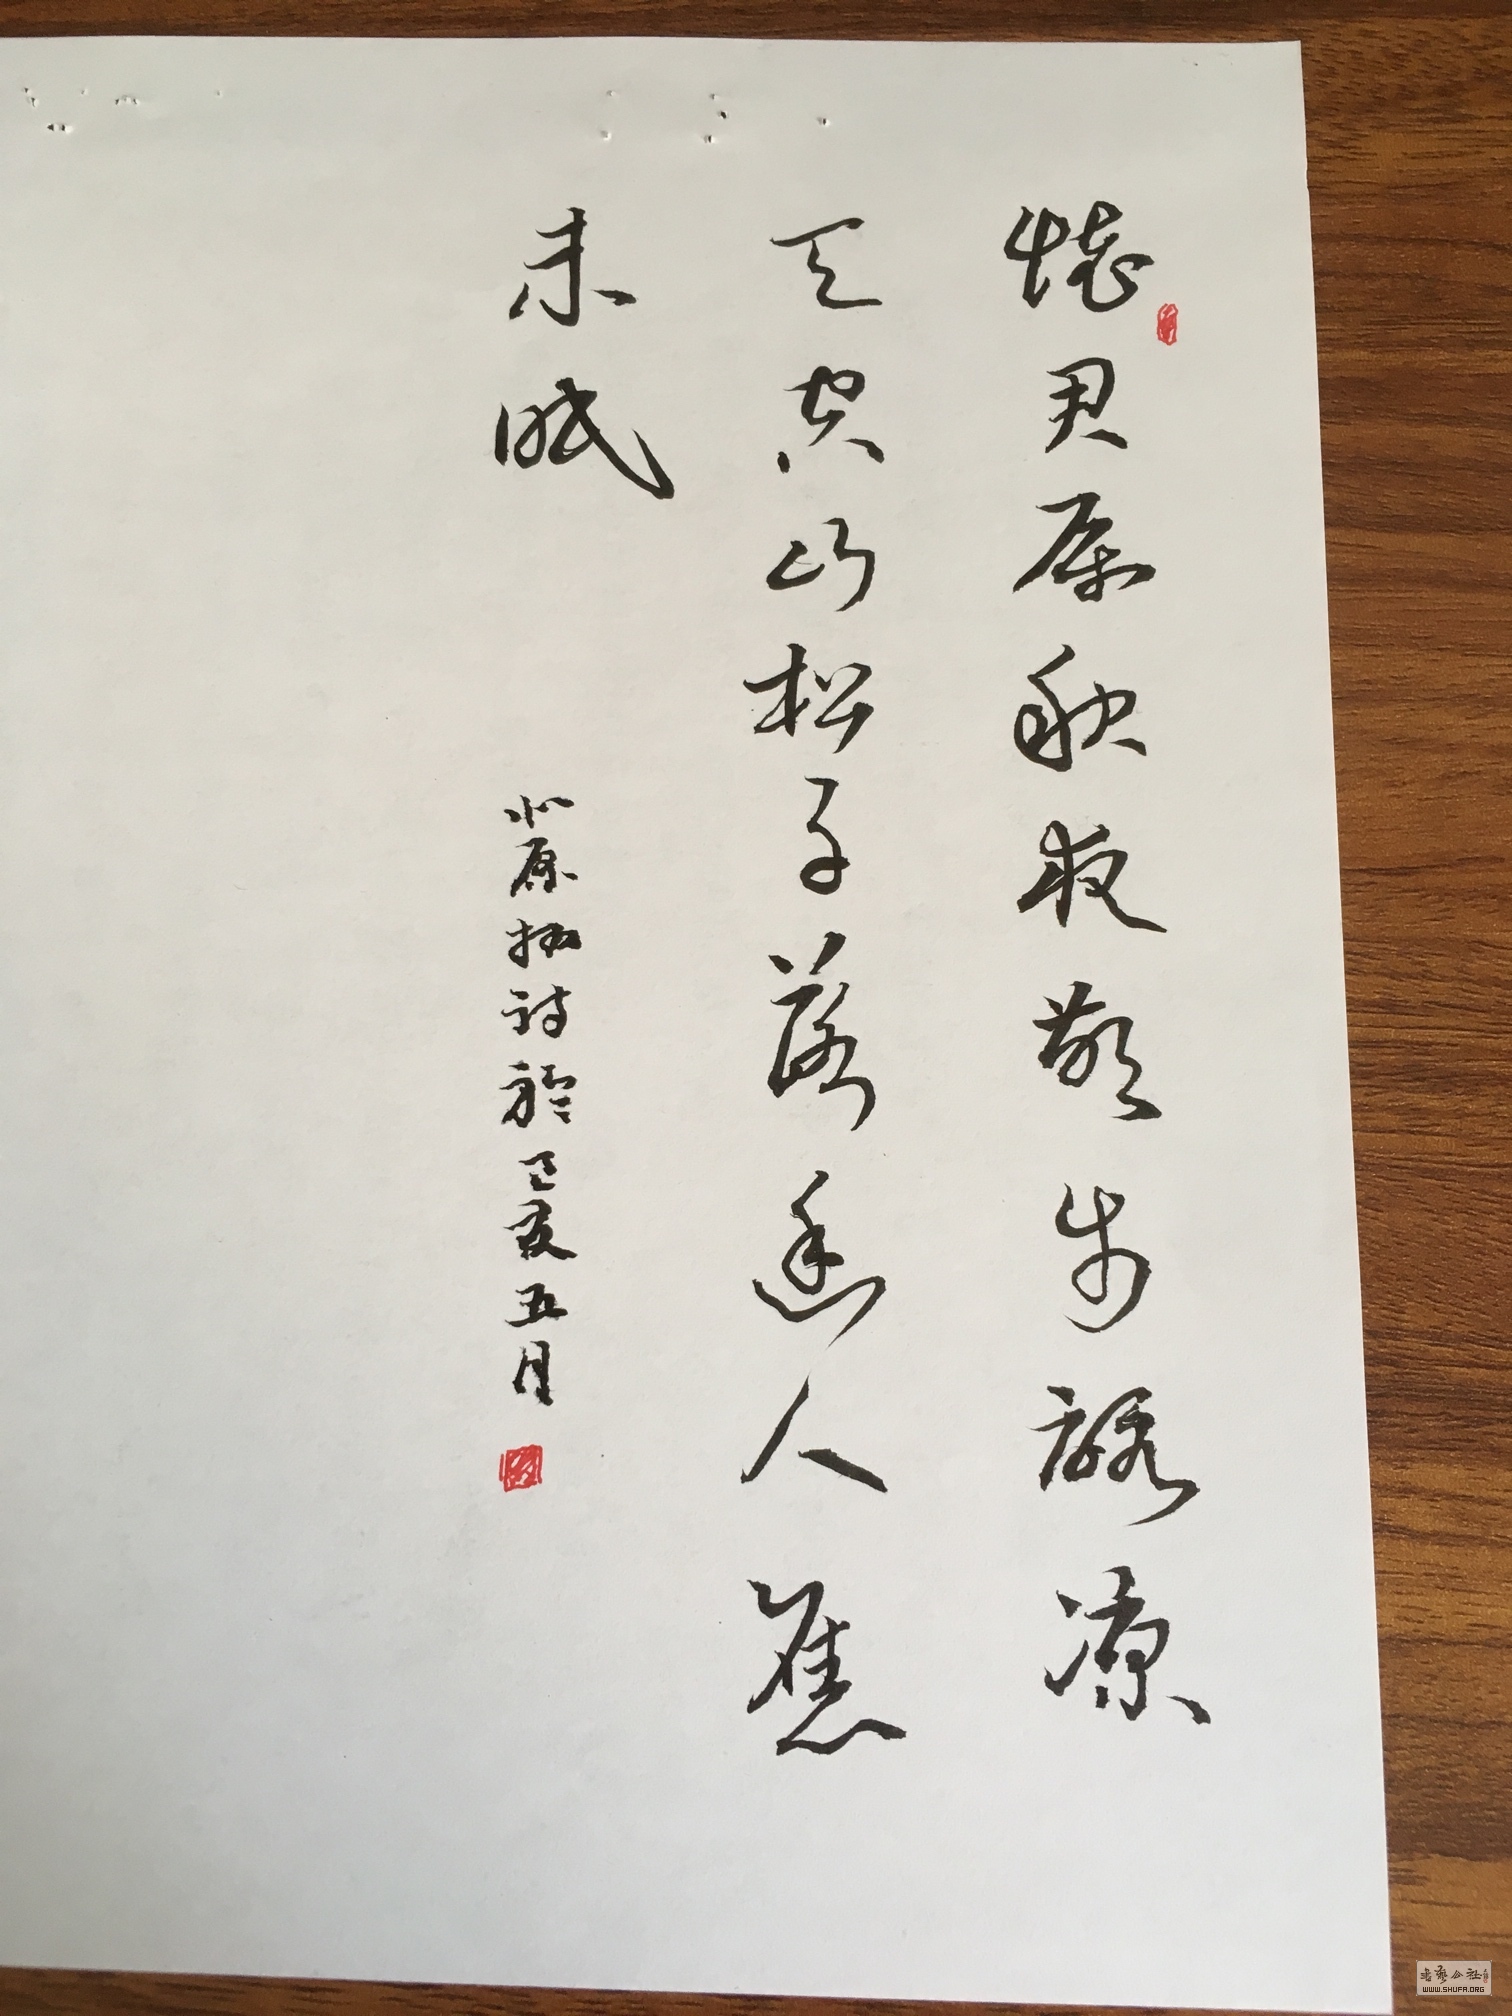 懷君屬秋夜散步詠凉
天空山松子落幽人應
未眠
詩於己亥五月
書藝公社
WWW.SHUFA.ORG